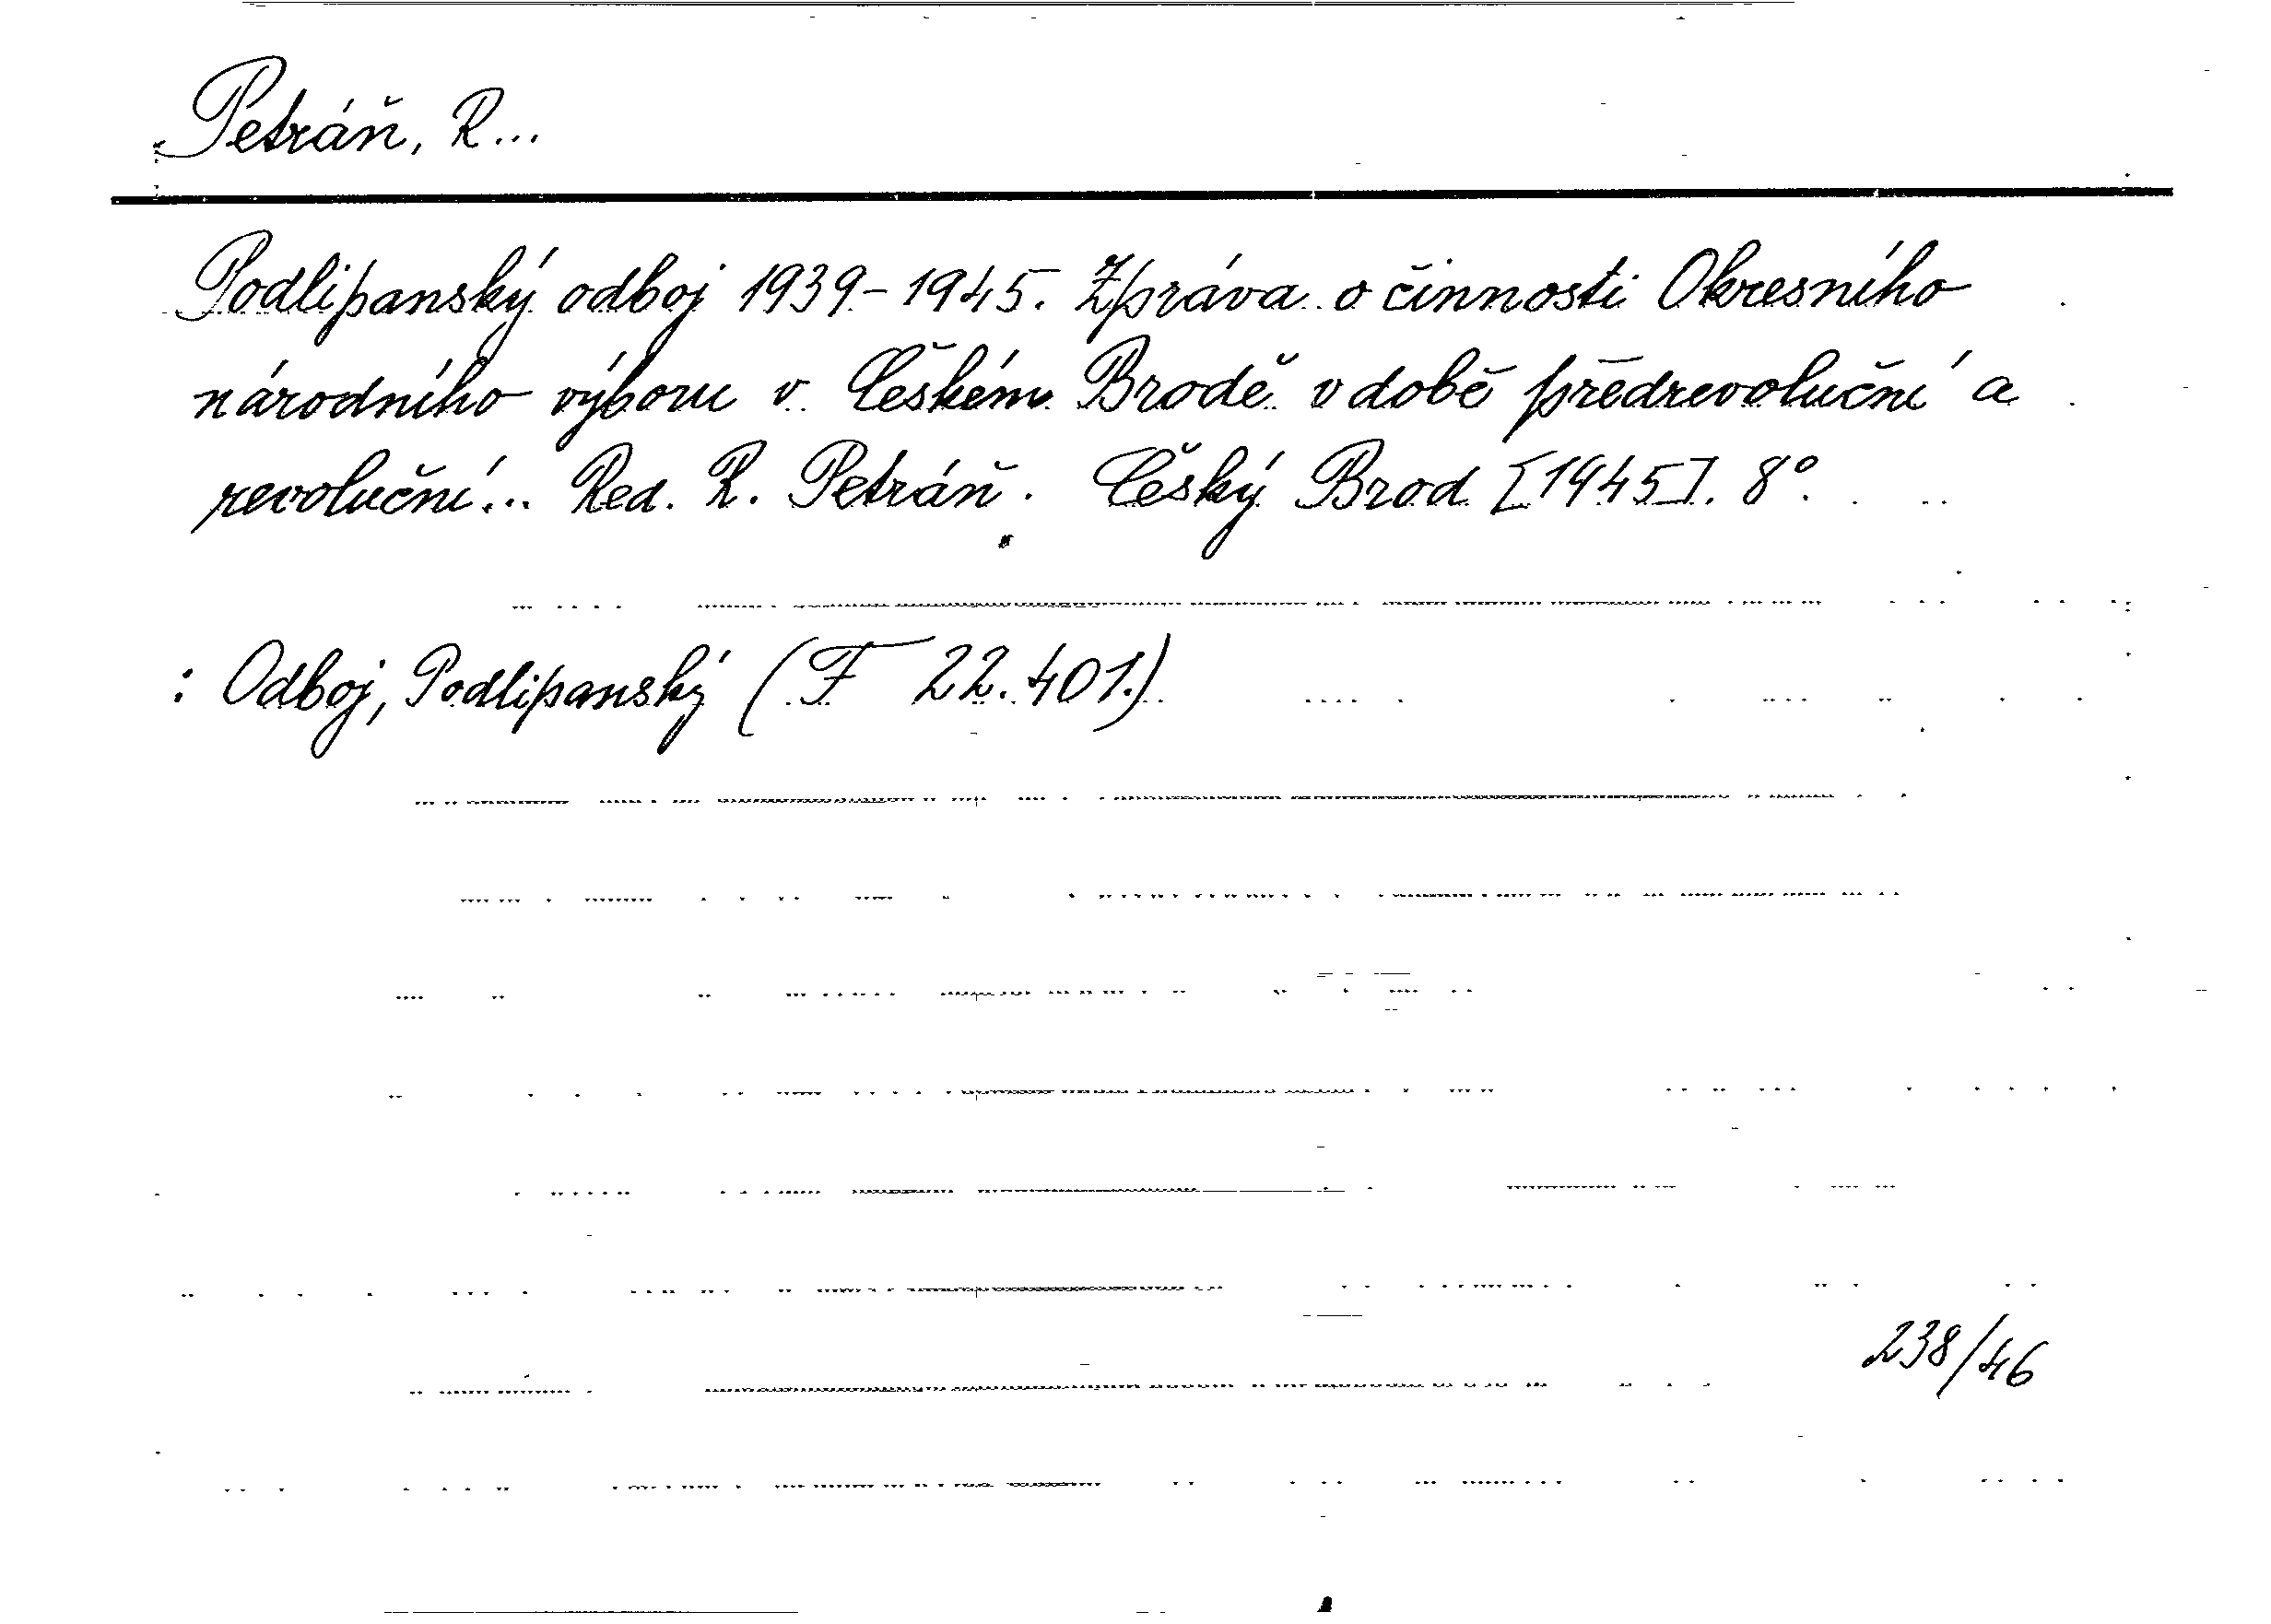 Petráň, R...
Podlipanský odboj 1939-1945. Zpráva o činnosti Okresního
národního výboru v Českém Brodě v době předrevoluční a
revoluční... Red. R. Petráň. Český Brod [1945]. 8°.
: Odboj, Podlipanský (F 22.401.)
238/46